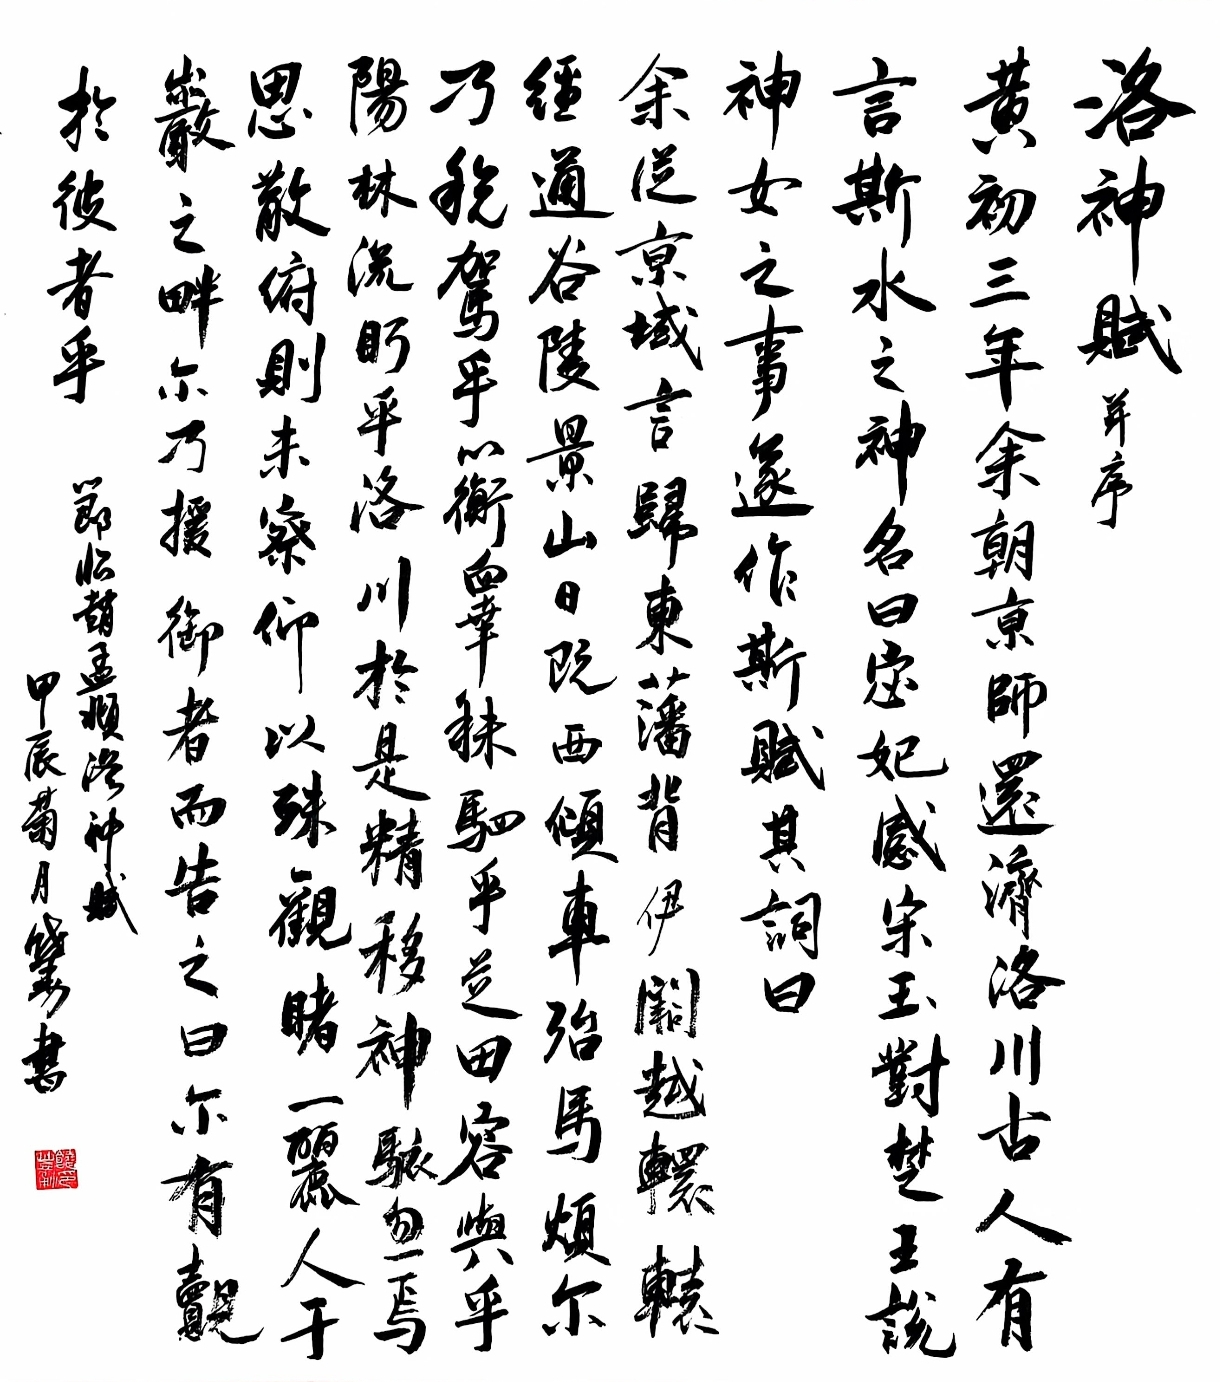 洛神賦并序
黄初三年余朝京師還濟洛川古人有
言斯水之神名曰宓妃感宋玉對楚王說
神女之事遂作斯賦其詞曰
余從京域言歸東藩背伊闕越轘轅
經通谷陵景山日既西傾車殆馬煩尔
乃稅駕乎蘅皋秣駟乎芝田容與乎
陽林流眄乎洛川於是精移神駭忽焉
思散俯則未察仰以殊觀睹一麗人于
巖之畔尔乃援御者而告之曰尔有覿
於彼者乎
節臨趙孟頫洛神賦
甲辰菊月 書